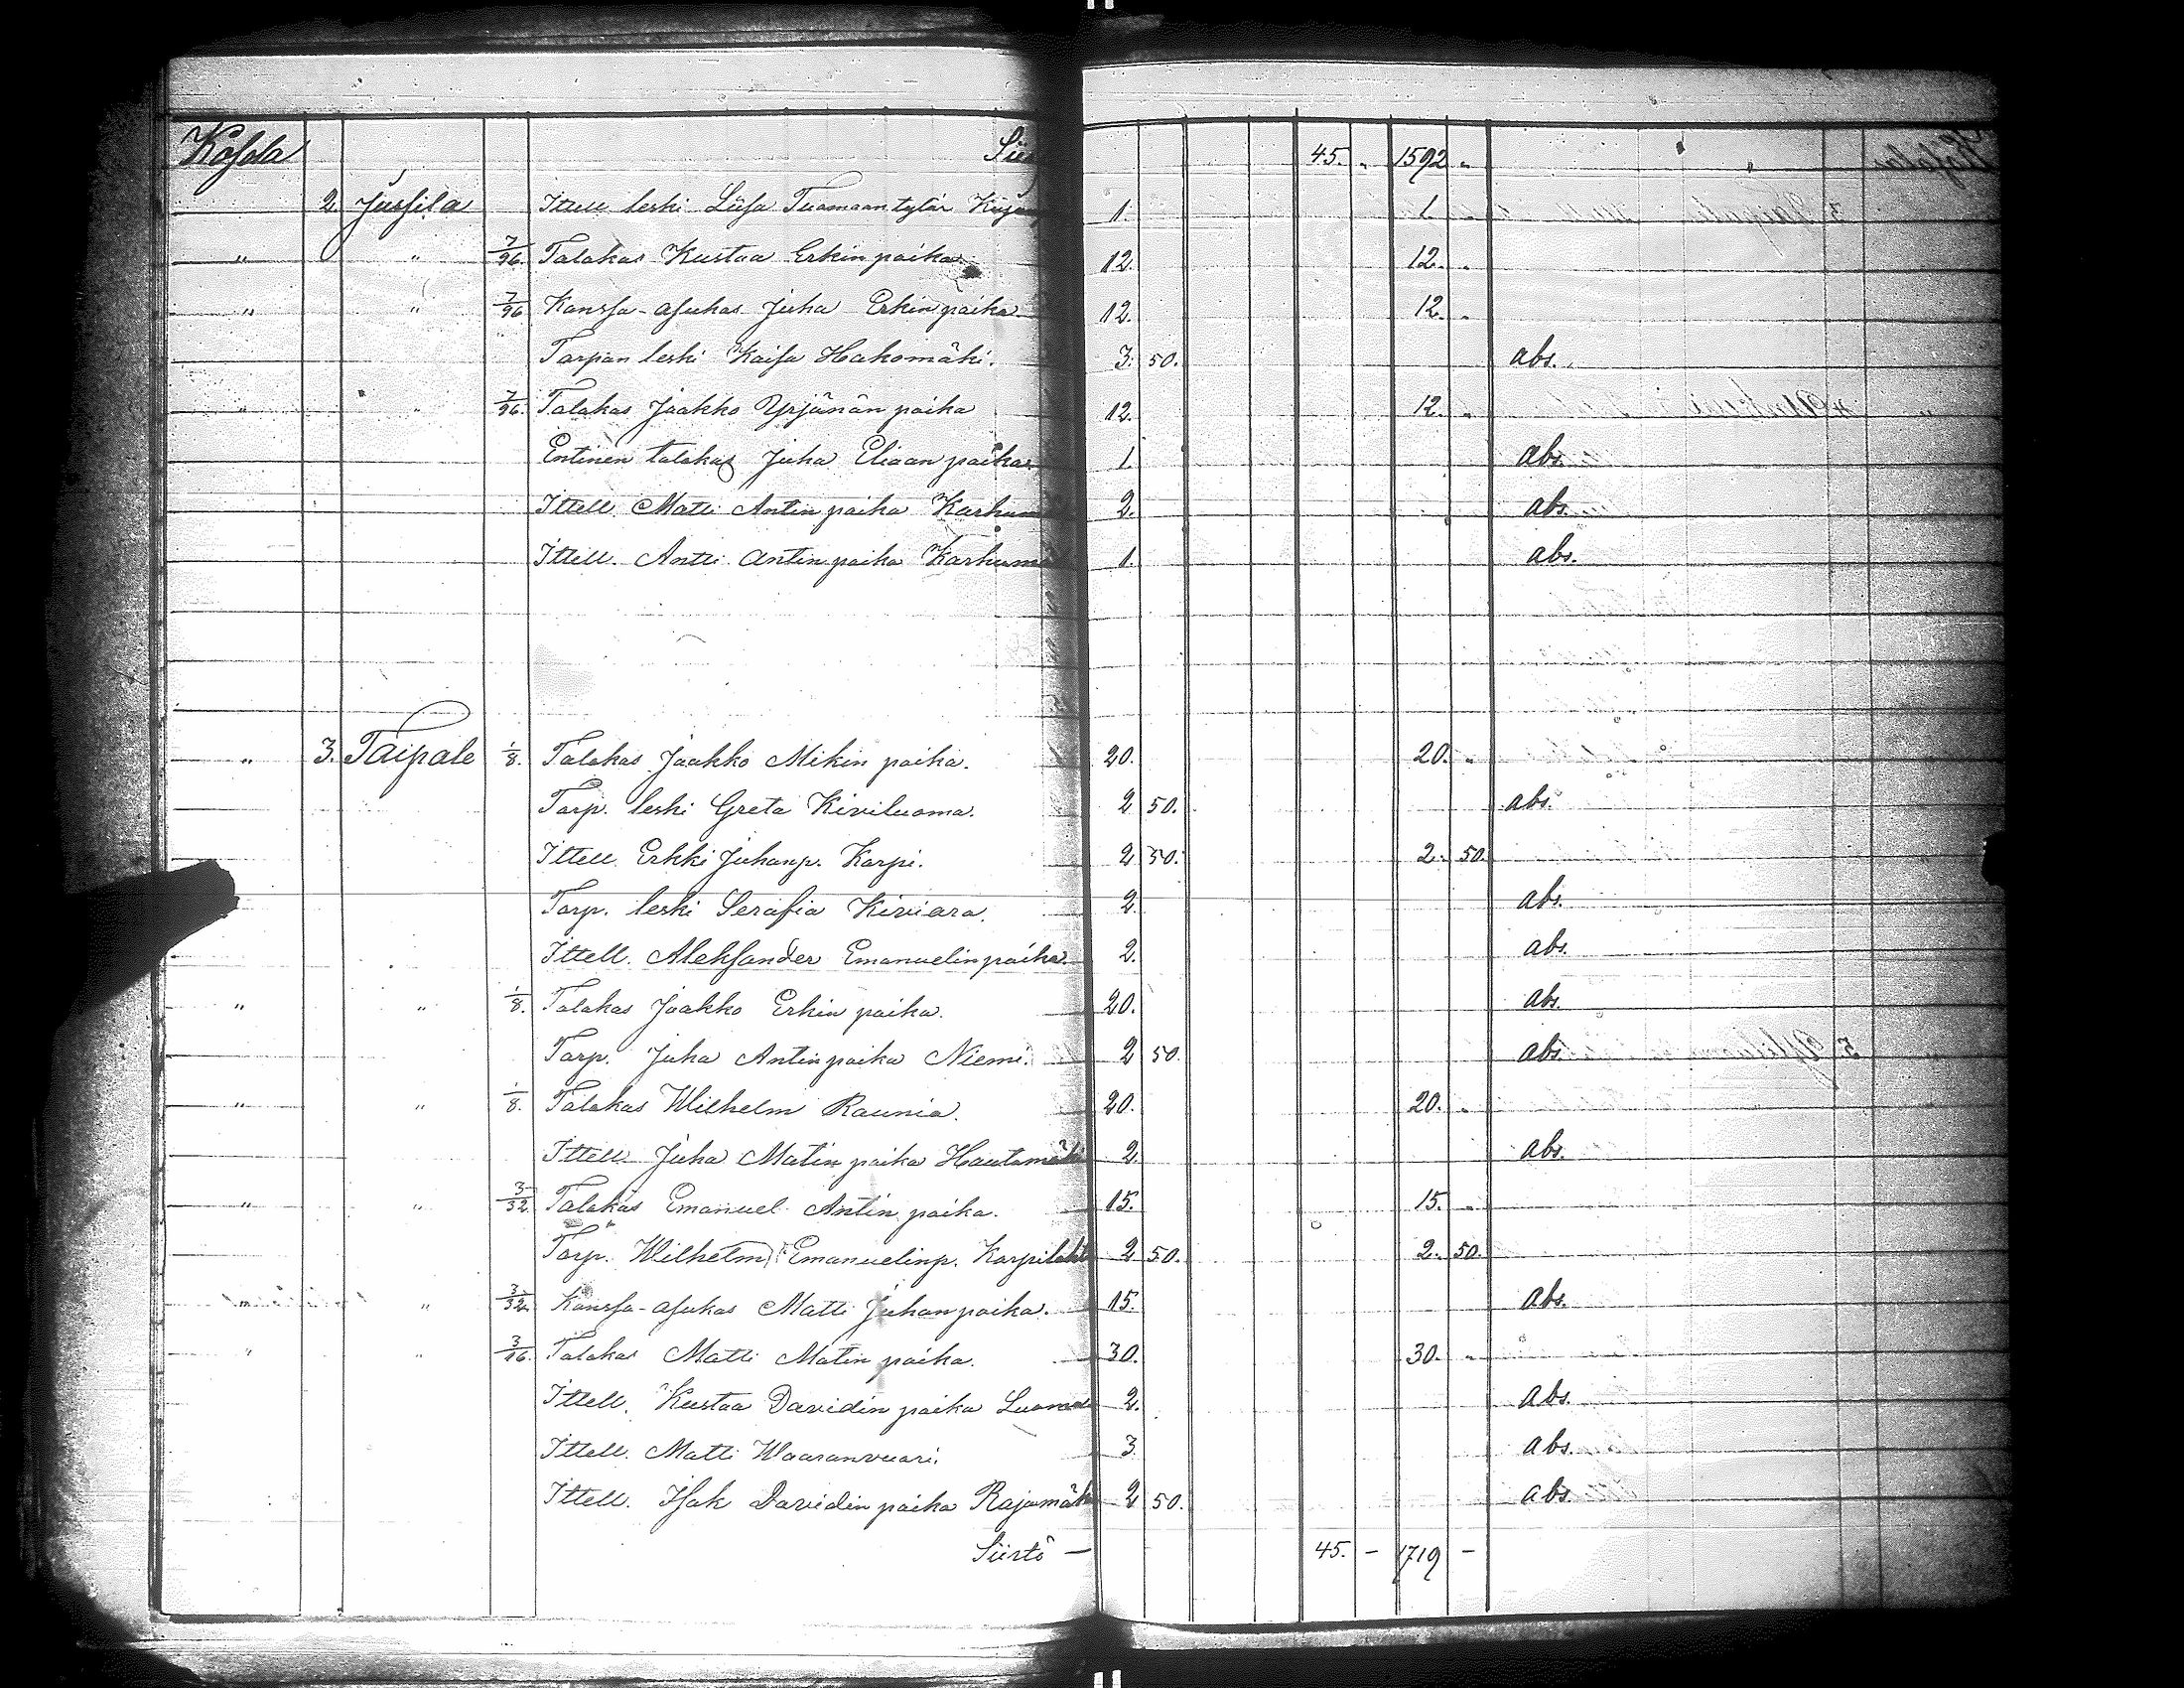 Kosola 45. " 1592 " "
2. Jussila Ittell. leski Liisa Tuomaan tytär 1. 1.
" " 7/96. Talakas Kustaa Erkin poika 12. 12. "
" " 7/96 Kanssa-asukas Juha Erkin poika 12. 12. "
Torpan leski Kaisa Hakomäki. 3. 50. abs.
" " 7/96. Talakas Jaakko Yrjänän poika 12. 12. "
Entinen talakas Juha Eliaan poika 1. abs.
Ittell. Matti Antin poika 2. abs.
Ittell. Antti Antin poika 1. abs.
" 3. Taipale 1/8. Talakas Jaakko Mikin poika. 20. 20. "
Torp. leski Greta Kiviluoma. 2 50. abs.
Ittell. Erkki Juhanp. Karpi. 2 50. 2. 50.
Torp. leski Serafia Kiviara. 2. abs.
Ittell. Aleksander Emanuelin poika. 2. abs.
" " 1/8. Talakas Jaakko Erkin poika. 20. abs.
Torp. Juha Antin poika Niemi. 2 50. abs.
" " 1/8. Talakas Wilhelm Raunia. 20. 20. "
Ittell. Juha Matin poika Hautamäki 2. abs.
" " 3/32 Talakas Emanuel Antin poika. 15. 15. "
Torp. Wilhelm Emanuelinp. 2 50. 2. 50.
" " 3/32. Kanssa-asukas Matti Juhan poika. 15. abs.
" " 3/16. Talakas Matti Matin poika. 30. 30. "
Ittell. Kustaa Davidin poika 2. abs.
Ittell. Matti Waaranvuori. 3. abs.
Ittell. Isak Davidin poika Rajamäki 2 50. abs.
Siirto — 45. — 1719 —